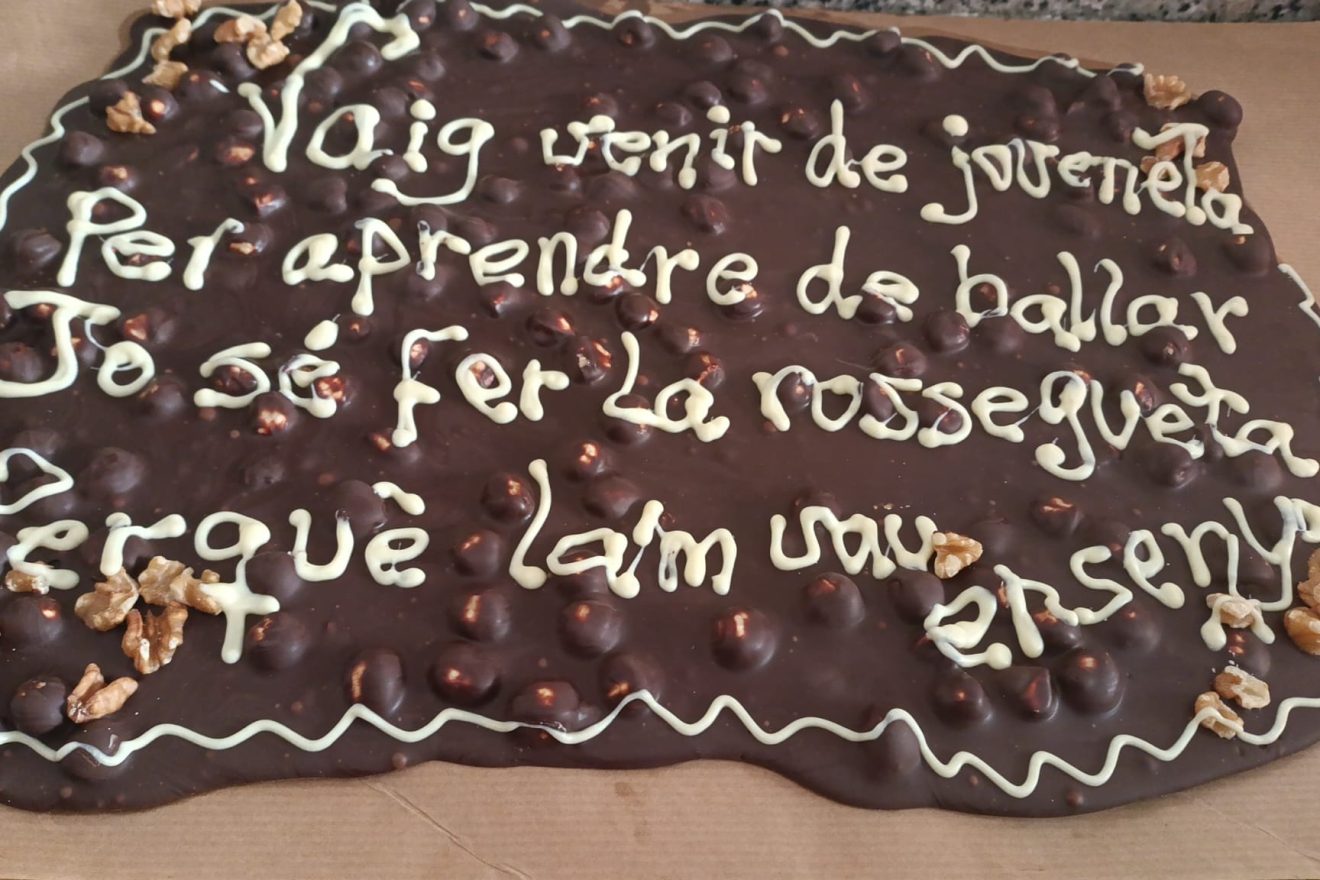 Vaig venir de joveneta
Per aprendre de ballar
Jo sé fer La rosségueta
Perquè lam vau enseny